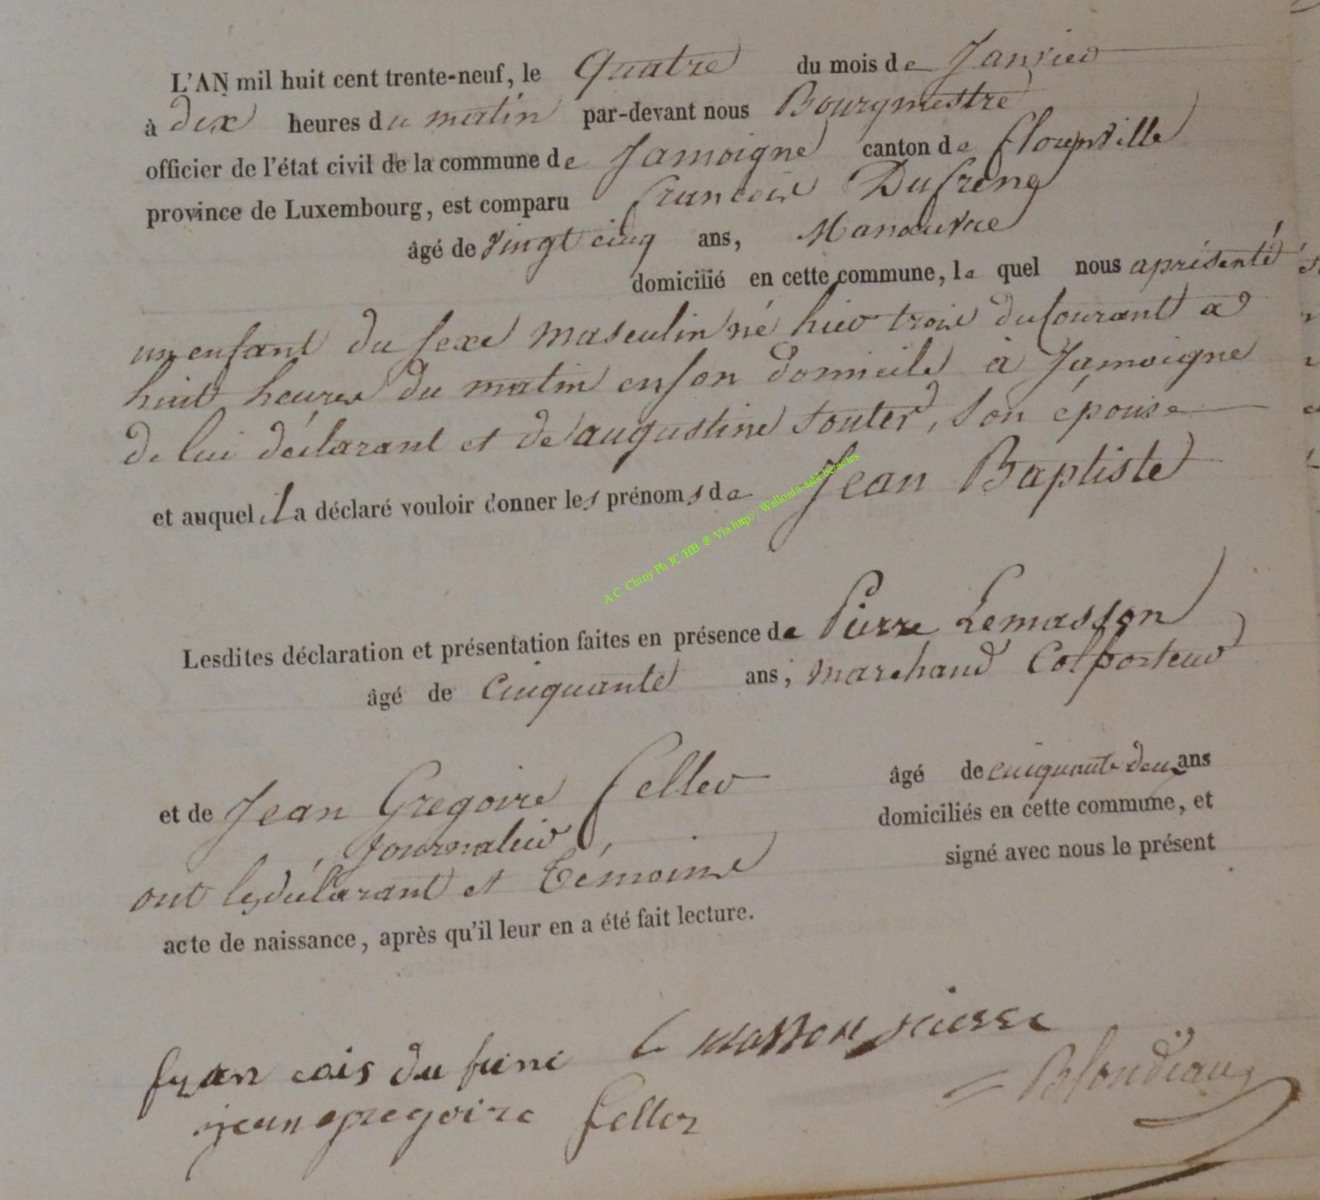 L'AN mil huit cent trente-neuf, le Quatre du mois de Janvier
à dix heures du matin par-devant nous Bourgmestre
officier de l'état civil de la commune de Jamoigne canton de florenville
province de Luxembourg, est comparu francois Dufrene
âgé de vingt cinq ans, Manouvre
domicilié en cette commune, le quel nous a présenté
un enfant du sexe masculin né hier trois du courant a
huit heures du matin en son domicile à Jamoigne
de lui déclarant et de augustine souter, son épouse
et auquel il a déclaré vouloir donner les prénoms de Jean Baptiste
A.C. Chiny Ph JC/RB ® Via http:// Wallonia-asbl heracles
Lesdites déclaration et présentation faites en présence de Pierre Lemasson
âgé de cinquante ans, marchand Colporteur
et de Jean Gregoire feller âgé de cinquante deux ans
journalier domiciliés en cette commune, et
ont les déclarant et témoins signé avec nous le présent
acte de naissance, après qu'il leur en a été fait lecture.
fran cois du frene le masson pierre
jean gregoire feller Blondiaux